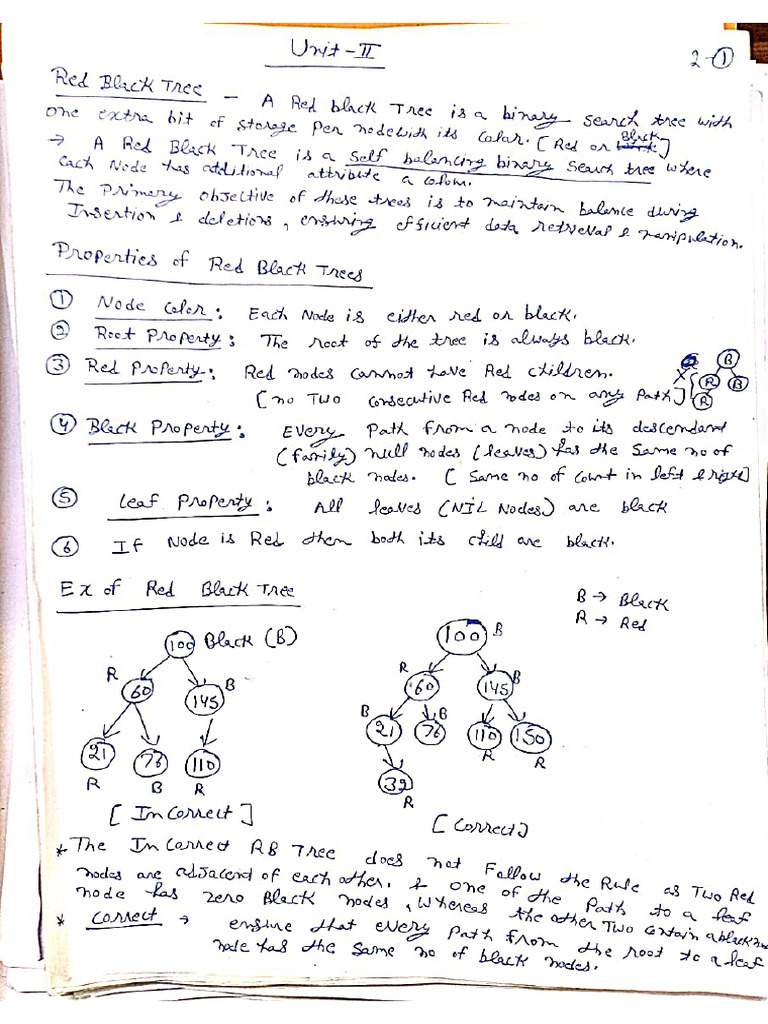 Unit-II
2-①
Red Black Tree - A Red black Tree is a binary search tree with
one extra bit of storage per node with its color. [Red or Black]
→ A Red Black Tree is a self balancing binary search tree where
each Node has additional attribute a colour.
The primary objective of these trees is to maintain balance during
Insertion & deletions, ensuring efficient data retrieval & manipulation.
Properties of Red Black Trees
① Node Color: Each Node is either red or black.
② Root Property: The root of the tree is always black.
③ Red Property: Red nodes cannot have Red children.
[no Two consecutive Red nodes on any Path]
X
B
R B
R
④ Black Property: Every Path from a node to its descendant
(family) null nodes (leaves) has the Same no of
black nodes. [Same no of count in left & right]
⑤ Leaf Property: All leaves (NIL Nodes) are black
⑥ If Node is Red then both its child are black.
Ex of Red Black Tree
B → Black
R → Red
100 Black (B)
R 60 145 B
21 76 110
R B R
[Incorrect]
100 B
R 60 145 B
B 21 76 B 110 150
R R
39
R
[Correct]
* The InCorrect RB Tree does not Follow the Rule as Two Red
nodes are adjacent of each other. & one of the Path to a leaf
node has zero Black nodes, whereas the other Two contain a black no
* Correct → ensure that every Path from the root to a leaf
node has the same no of black nodes.